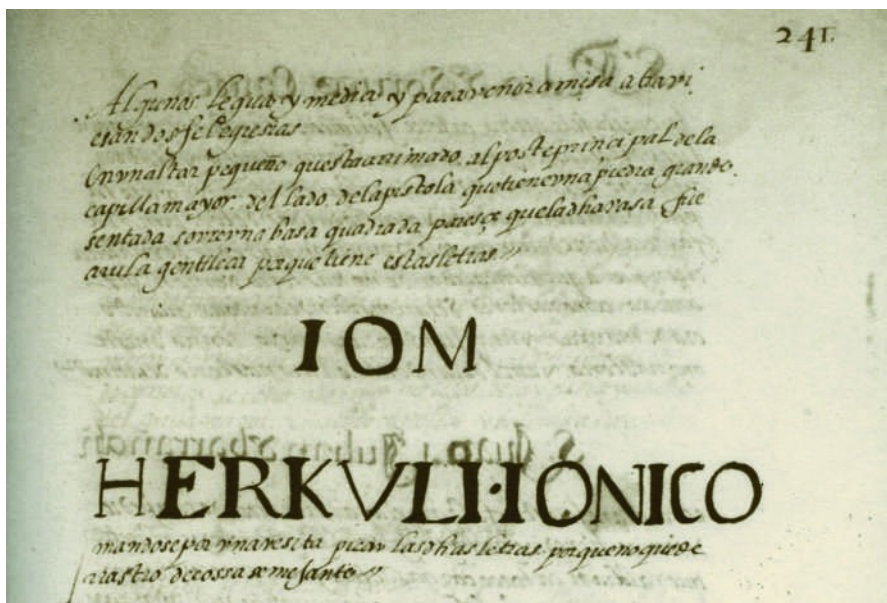 241.
Algunos legua y media y para venir a misa a tari
etandose feligresias
En un altar pequeño questa arrimado al poste principal de la
capilla mayor del lado de la pistola quetiene vna piedra grande
sentada sovre vna basa quadrada paresçe que la dha rasa fue
arula gentilica porque tiene estas letras
IOM
HERKVLI·IONICO
mandose por vna resita picar las dhas letras porque no quede
rrastro de cossa semejante